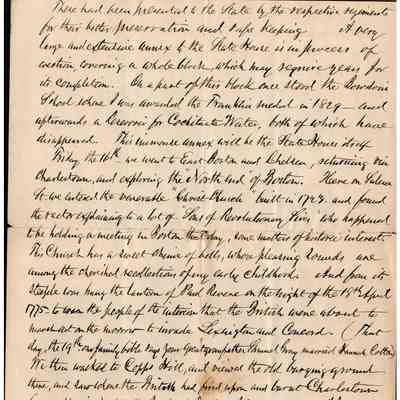 These had been presented to the State by the respective regiments
for their better preservation and safe keeping. A very
large and extensive annex to the State House is in process of
erection covering a whole block, which may require years for
its completion. On a part of this block once stood the Bowdoin
School where I was awarded the Franklin medal in 1829 — and
afterwards a reservoir for Cochituate Water, both of which have
disappeared. This immense annex will be the State House itself
Friday the 16th we went to East Boston and Chelsea, returning via
Charlestown, and exploring the North End of Boston. Here on Salem
St. we entered the venerable "Christ Church" built in 1723, and found
the rector explaining to a lot of "Sons of Revolutionary Sires" who happened
to be holding a meeting in Boston that day, some matters of historic interest.
This Church has a sweet chime of bells, whose pleasing sounds are
among the cherished recollections of my early Childhood. And from its
steeple was hung the lantern of Paul Revere on the night of the 18th April
1775 to warn the people of the interior that the British were about to
march out on the morrow to invade Lexington and Concord. (That
day, the 19th, our family bible says your great grandfather Samuel Gray married Hannah Cotton)
We then walked to Copps Hill, and viewed the old burying ground
there, and saw where the British had fired upon and burnt Charlestown